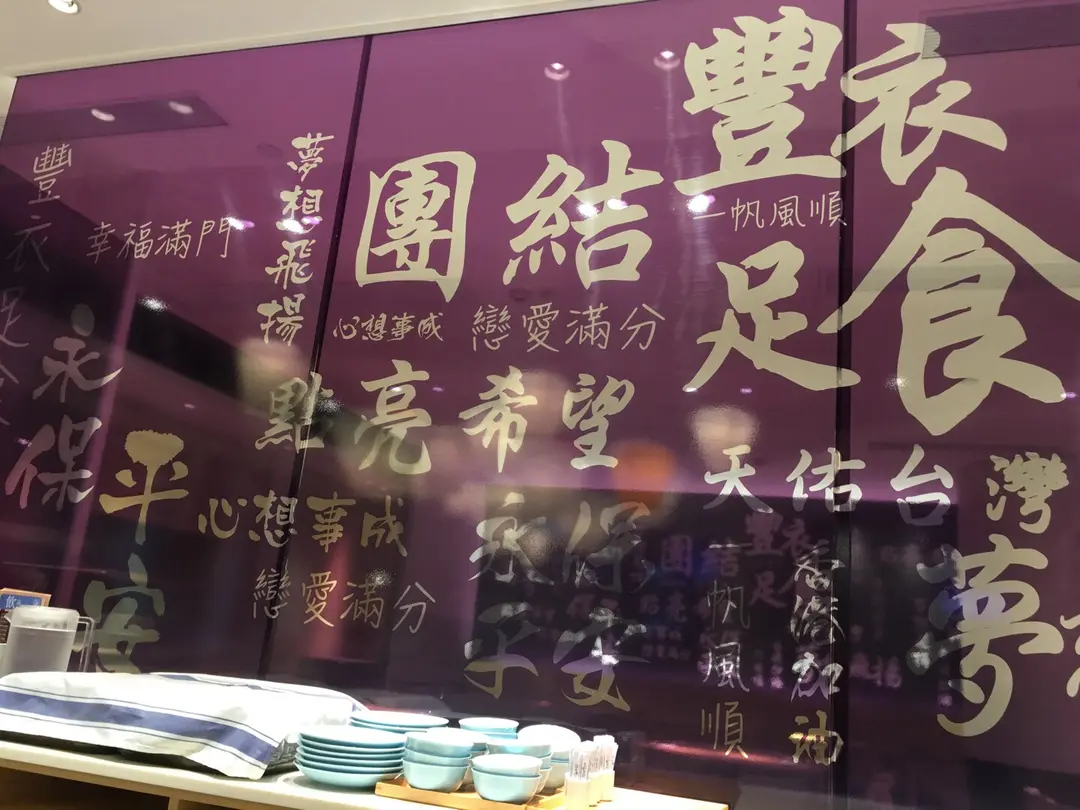 豐衣足食
幸福滿門
永保
平安
夢想飛揚
團結
心想事成
戀愛滿分
點亮希望
心想事成
戀愛滿分
永保
平安
豐衣
足食
一帆風順
天佑台灣
一帆風順
香港加油
夢
飲